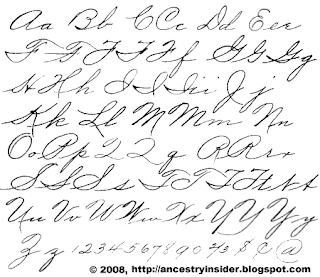 Aa Bb CCc Dd Eee
F F F Ff G G Gg
H Hh I I Iii J j
Kk Ll M Mm Nn
Oo Pp 2 2 q R Rr r
S S Ss T T T Ht t
Uu Vv Ww Xx Y Y Yy
Zz 1 2 3 4 5 6 7 8 9 0 $ ¢ @
© 2008, http://ancestryinsider.blogspot.com